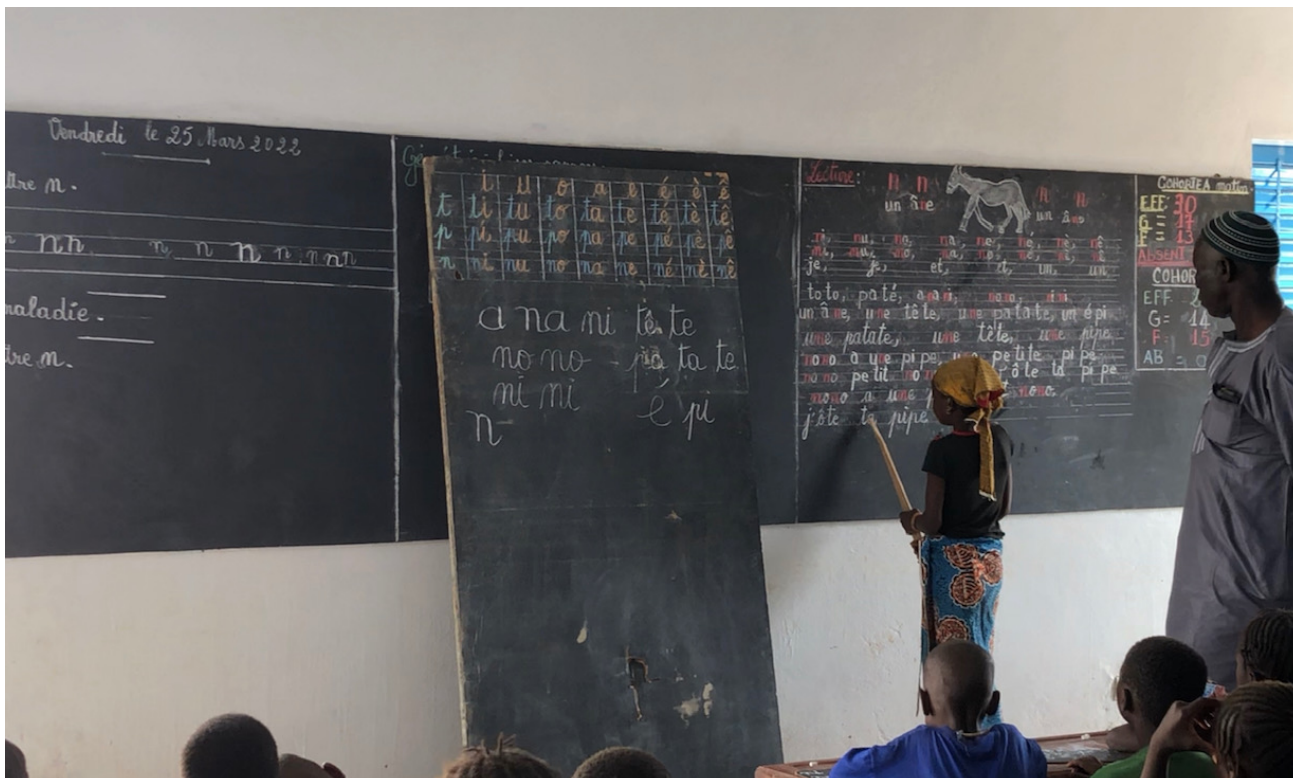 Vendredi le 25 Mars 2022
ttre n.
nn n n n n nnn
maladie.
ttre n.
i u o a e é è ê
t ti tu to ta te té tè tê
p pi pu po pa pe pé pè pê
n ni nu no na ne né nè nê
a na ni tê te
no no pa ta te
ni ni é pi
n
Lecture: n n n n
un âne un âne
ni, nu, no, na, ne, né, nè, nê
ni, nu, no, na, ne, né, nè, nê
je, je, et, et, un, un
toto, pâté, nani, nono, nini
un âne, une tête, une patate, un épi
une patate, une tête, une pipe
nono a une pipe, une petite pipe
nono petit ôte ta pipe
nono a une nono,
j'ôte ta pipe
COHORTE A matin
EFF 30
G = 17
F = 13
ABSENT
COHOR
EFF 2
G = 14
F. 15
AB = 0